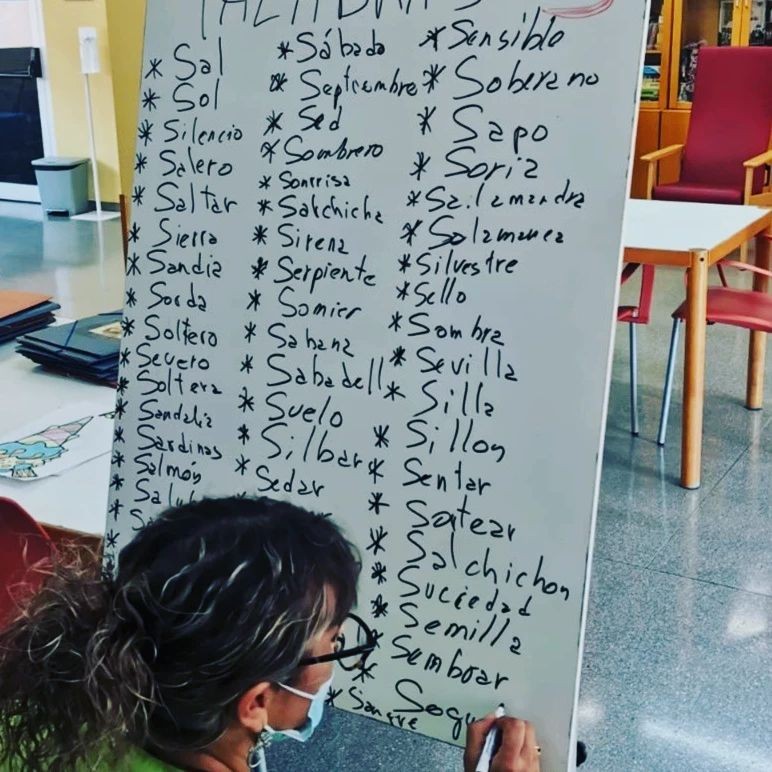 PALABRAS
* Sal
* Sol
* Silencio
* Salero
* Saltar
* Sierra
* Sandia
* Sorda
* Soltero
* Severo
* Soltera
* Sandalia
* Sardinas
* Salmón
* Sábado
* Septiembre
* Sed
* Sombrero
* Sonrisa
* Salchicha
* Sirena
* Serpiente
* Somier
* Sabana
* Sabadell
* Suelo
* Silbar
* Sedar
* Sensible
* Soberano
* Sapo
* Soria
* Salamandra
* Salamanca
* Silvestre
* Sello
* Sombra
* Sevilla
* Silla
* Sillon
* Sentar
* Sortear
* Salchichon
* Suciedad
* Semilla
* Sembrar
* Segu
* Sangre